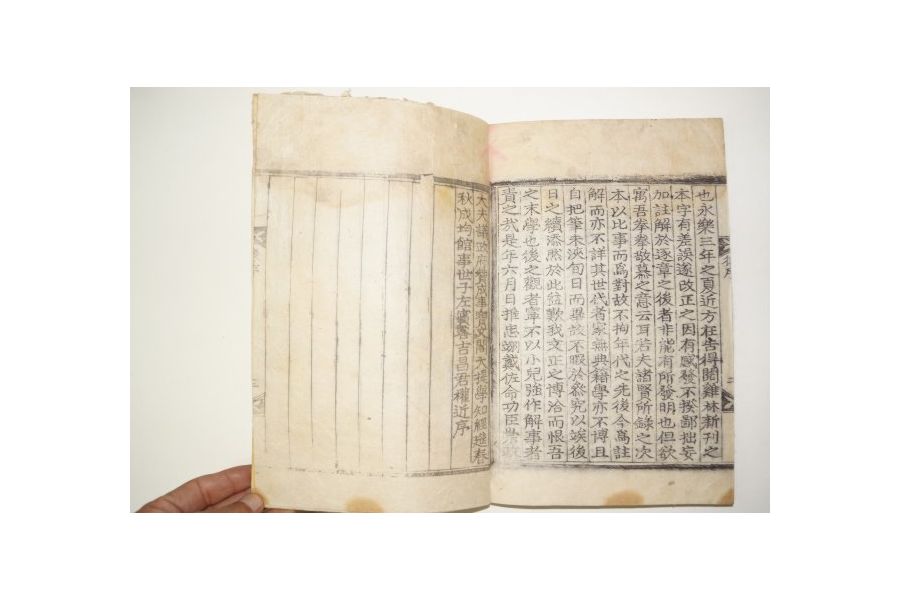 也永樂三年之夏近方在告得閱雞林新刊之
本字有差誤遂改正之因有感發不揆鄙拙妄
加註解於逐章之後者非能有所發明也但欲
寓吾拳拳敬慕之意云耳若夫諸賢所錄之次
本以比事而爲對故不拘年代之先後今爲註
解而亦不詳其世代者家無典籍學亦不博且
自把筆未浹旬日而畢故不暇於叅究以竢後
日之續添然於此益歎我文正之博洽而恨吾
之末學也後之觀者寧不以小兒強作解事者
責之哉是年六月日推忠翊戴佐命功臣崇政
大夫議政府贊成事寶文閣大提學知經筵春
秋成均館事世子左賓客吉昌君權近序
後序
二